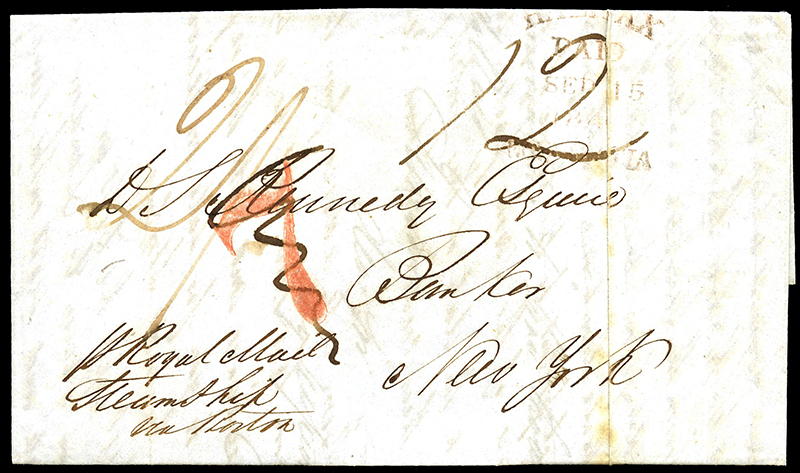 PAID
SEP 15
2/
12
D. S. Kennedy Esquire
Banker
New York
p Royal Mail
Steamship
via Boston